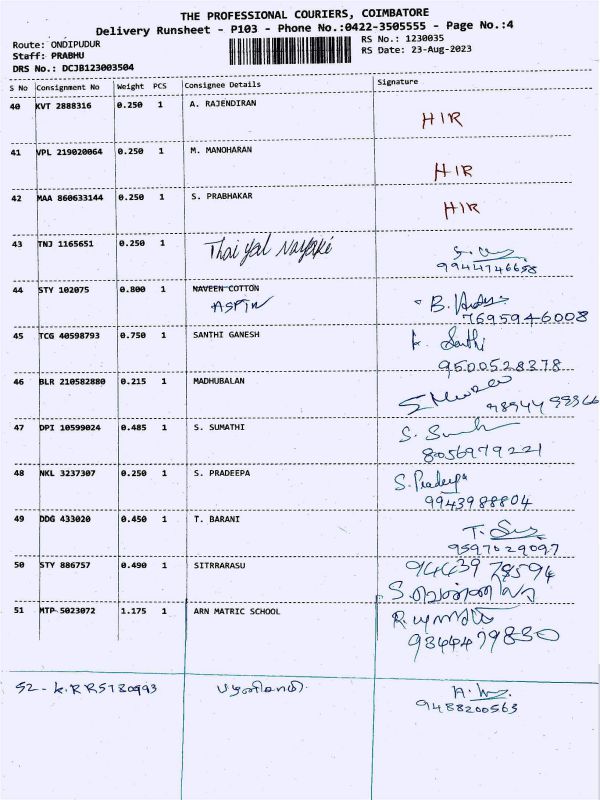 THE PROFESSIONAL COURIERS, COIMBATORE
Delivery Runsheet - P103 - Phone No.:0422-3505555 - Page No.:4
Route: ONDIPUDUR
RS No.: 1230035
Staff: PRABHU
RS Date: 23-Aug-2023
DRS No.: DCJB123003504
S No Consignment No Weight PCS Consignee Details Signature
40 KVT 2888316 0.250 1 A. RAJENDIRAN
HIR
41 VPL 219020064 0.250 1 M. MANOHARAN
HIR
42 MAA 860633144 0.250 1 S. PRABHAKAR
HIR
43 TNJ 1165651 0.250 1 Thaiyal Nayaki
9944746658
44 STY 102075 0.800 1 NAVEEN COTTON
ASPIN B.
7695946008
45 TCG 40598793 0.750 1 SANTHI GANESH
Santhi
9500528378
46 BLR 210582880 0.215 1 MADHUBALAN
47 DPI 10599024 0.485 1 S. SUMATHI
S.
8056979221
48 NKL 3237307 0.250 1 S. PRADEEPA
S. Pradeepa
9943988804
49 DDG 433020 0.450 1 T. BARANI
T.
9597029097
50 STY 886757 0.490 1 SITRRARASU
9443978594
S.
51 MTP 5023072 1.175 1 ARN MATRIC SCHOOL
R.
9344479830
52 - KRR5780993 பழனிசாமி. A.
9488200563